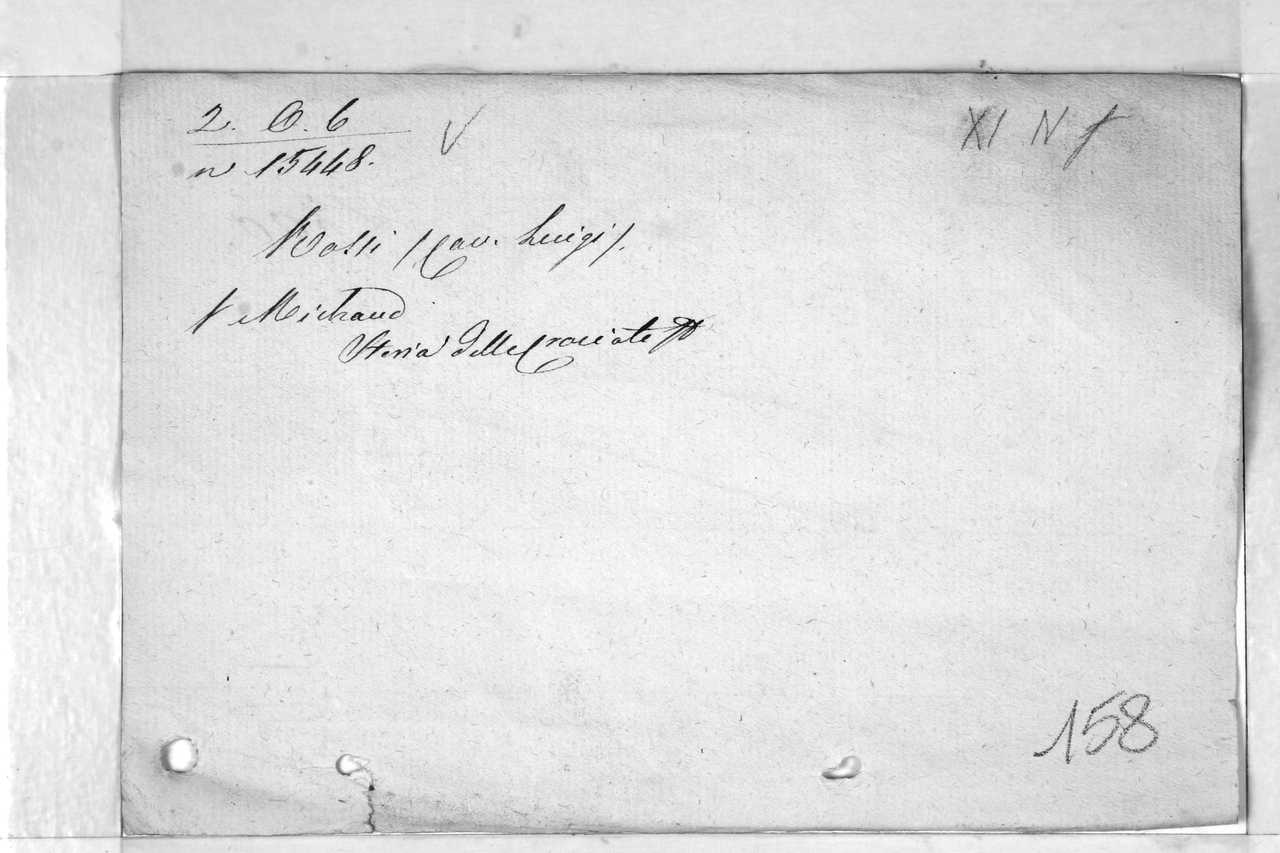 2. O. 6
XI N f
n 15448.
Rossi /Cav. Luigi/.
V Michaud
Storia delle Crociate
158